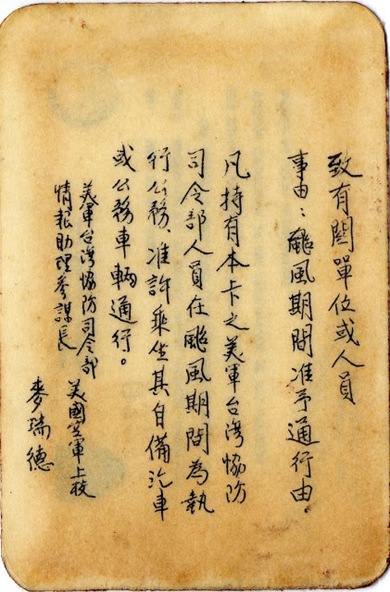 致有関單位或人員
事由：颱風期間准予通行由。
凡持有本卡之美軍台灣協防
司令部人員在颱風期間為執
行公務、准許乘坐其自備汽車
或公務車輛通行。
美軍台灣協防司令部
情報助理參謀長
美國空軍上校
麥瑞德